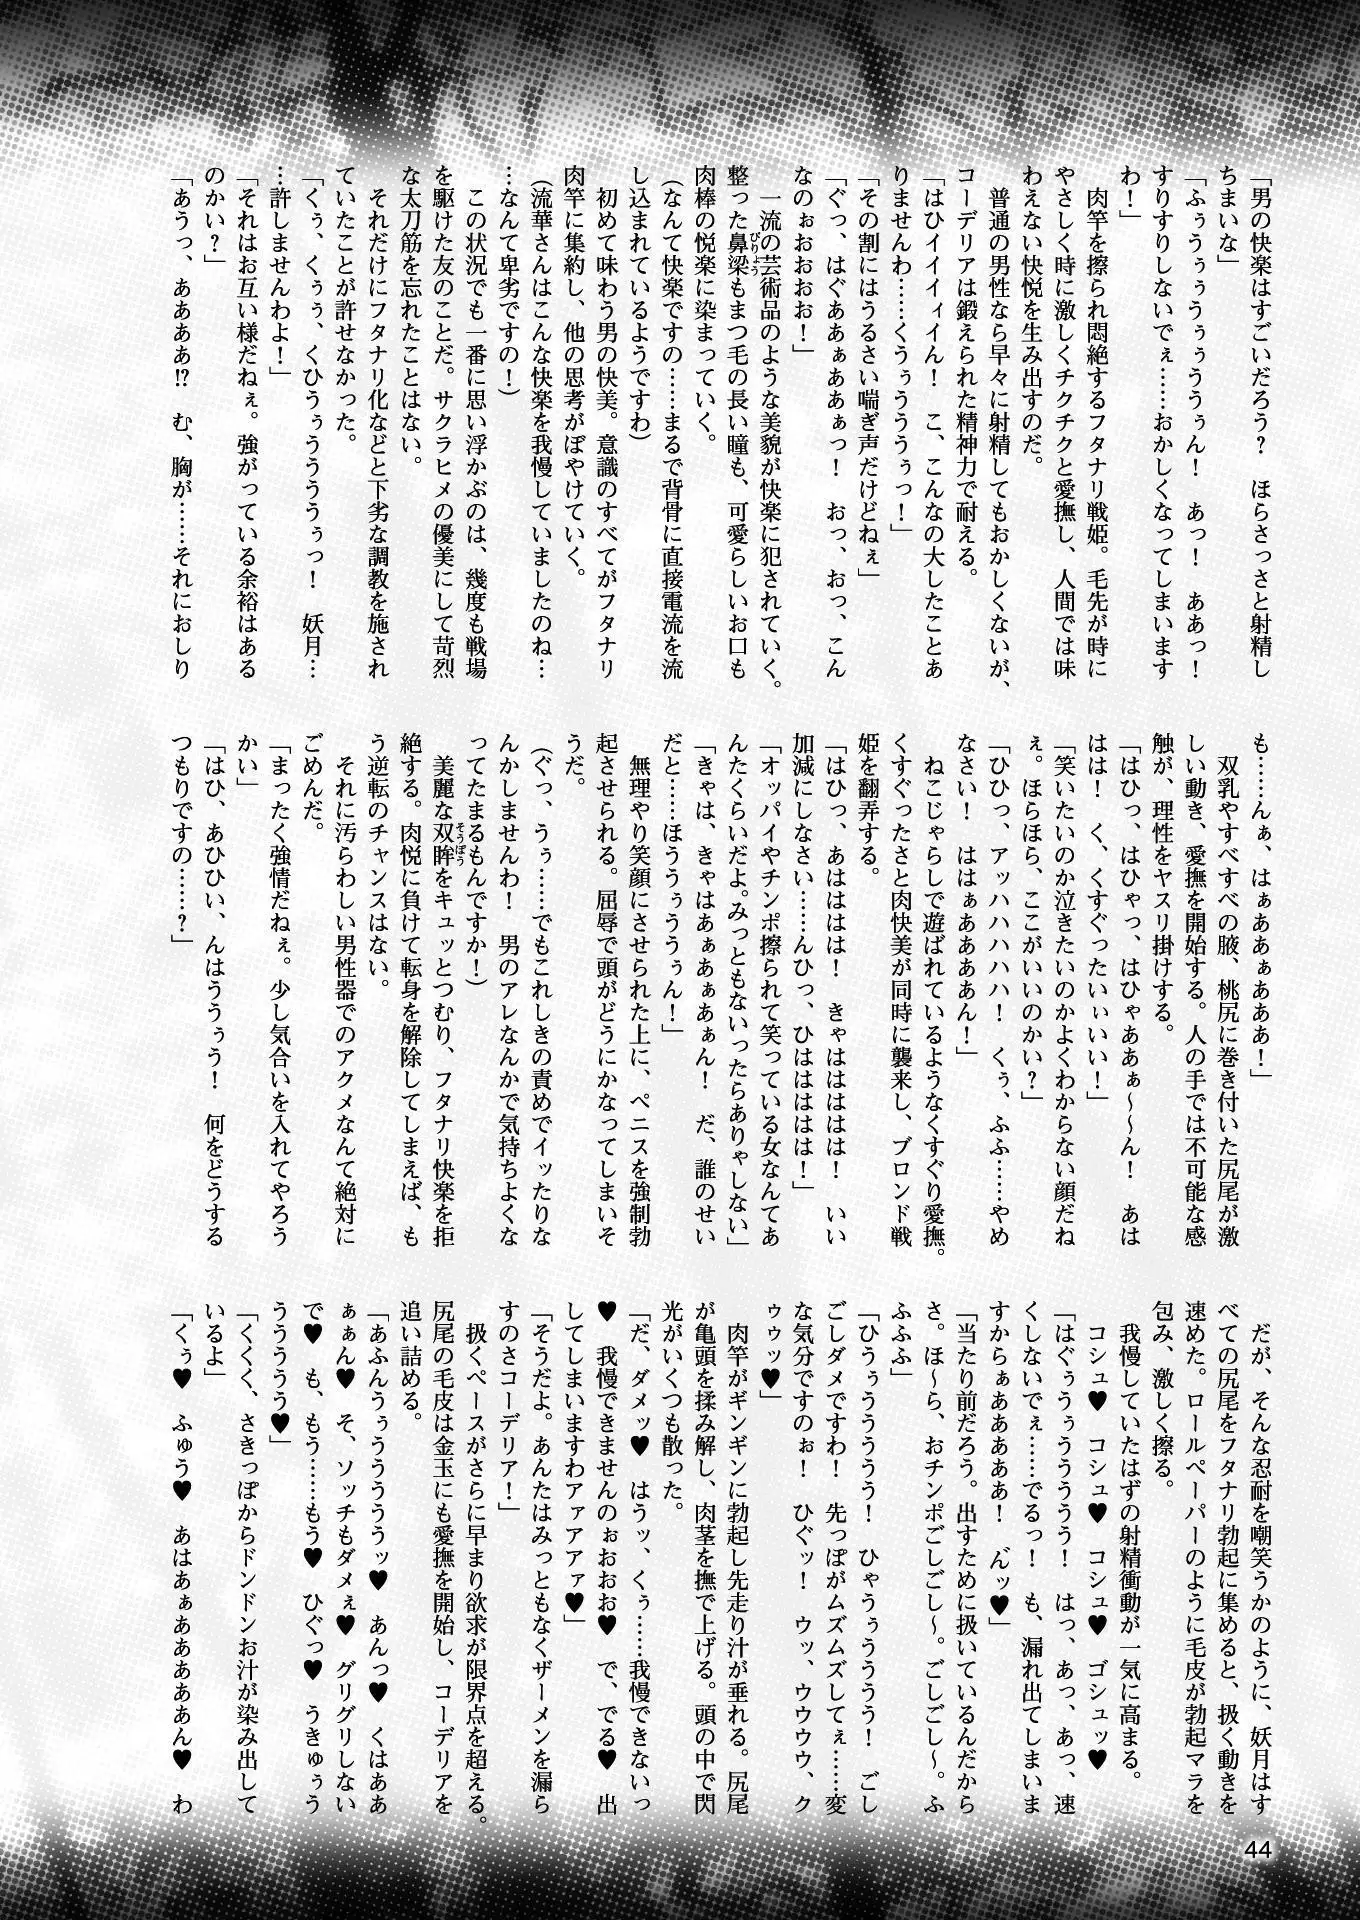 「男の快楽はすごいだろう？　ほらさっさと射精し
ちまいな」
「ふぅうぅぅうぅぅううぅん！　あっ！　ああっ！
すりすりしないでぇ……おかしくなってしまいます
わ！」
　肉竿を擦られ悶絶するフタナリ戦姫。毛先が時に
やさしく時に激しくチクチクと愛撫し、人間では味
わえない快悦を生み出すのだ。
　普通の男性なら早々に射精してもおかしくないが、
コーデリアは鍛えられた精神力で耐える。
「はひイイイィイん！　こ、こんなの大したことあ
りませんわ……くうぅうううぅっ！」
「その割にはうるさい喘ぎ声だけどねぇ」
「ぐっ、はぐああぁああぁっ！　おっ、おっ、こん
なのぉおおおお！」
　一流の芸術品のような美貌が快楽に犯されていく。
整った鼻梁もまつ毛の長い瞳も、可愛らしいお口も
肉棒の悦楽に染まっていく。
（なんて快楽ですの……まるで背骨に直接電流を流
し込まれているようですわ）
　初めて味わう男の快美。意識のすべてがフタナリ
肉竿に集約し、他の思考がぼやけていく。
（流華さんはこんな快楽を我慢していましたのね…
…なんて卑劣ですの！）
　この状況でも一番に思い浮かぶのは、幾度も戦場
を駆けた友のことだ。サクラヒメの優美にして苛烈
な太刀筋を忘れたことはない。
　それだけにフタナリ化などと下劣な調教を施され
ていたことが許せなかった。
「くぅ、くぅぅ、くひうぅうううぅっ！　妖月…
…許しませんわよ！」
「それはお互い様だねぇ。強がっている余裕はある
のかい？」
「あうっ、ああああ!?　む、胸が……それにおしり
も……んぁ、はぁああぁあああ！」
　双乳やすべすべの腋、桃尻に巻き付いた尻尾が激
しい動き、愛撫を開始する。人の手では不可能な感
触が、理性をヤスリ掛けする。
「はひっ、はひゃっ、はひゃああぁ～～ん！　あは
はは！　く、くすぐったいぃいい！」
「笑いたいのか泣きたいのかよくわからない顔だね
ぇ。ほらほら、ここがいいのかい？」
「ひひっ、アッハハハハハ！　くぅ、ふふ……やめ
なさい！　ははぁああああん！」
　ねこじゃらしで遊ばれているようなくすぐり愛撫。
くすぐったさと肉快美が同時に襲来し、ブロンド戦
姫を翻弄する。
「はひっ、あはははは！　きゃはははははは！　いい
加減にしなさい……んひっ、ひはははははは！」
「オッパイやチンポ擦られて笑っている女なんてあ
んたくらいだよ。みっともないったらありゃしない」
「きゃは、きゃはあぁあぁあぁん！　だ、誰のせい
だと……ほううぅううぅん！」
　無理やり笑顔にさせられた上に、ペニスを強制勃
起させられる。屈辱で頭がどうにかなってしまいそ
うだ。
（ぐっ、うぅ……でもこれしきの責めでイッたりな
んかしませんわ！　男のアレなんかで気持ちよくな
ってたまるもんですか！）
　美麗な双眸をキュッとつむり、フタナリ快楽を拒
絶する。肉悦に負けて転身を解除してしまえば、も
う逆転のチャンスはない。
　それに汚らわしい男性器でのアクメなんて絶対に
ごめんだ。
「まったく強情だねぇ。少し気合いを入れてやろう
かい」
「はひ、あひひい、んはううぅう！　何をどうする
つもりですの……？」
　だが、そんな忍耐を嘲笑うかのように、妖月はす
べての尻尾をフタナリ勃起に集めると、扱く動きを
速めた。ロールペーパーのように毛皮が勃起マラを
包み、激しく擦る。
　我慢していたはずの射精衝動が一気に高まる。
　コシュ♥　コシュ♥　コシュ♥　ゴシュッ♥
「はぐぅうぅうううう！　はっ、あっ、あっ、速
くしないでぇ……でるっ！　も、漏れ出てしまいま
すからぁあああああ！　んッ♥」
「当たり前だろう。出すために扱いているんだから
さ。ほ～ら、おチンポごしごし～。ごしごし～。ふ
ふふふ」
「ひうぅうううう！　ひゃうぅうううう！　ごし
ごしダメですわ！　先っぽがムズムズしてぇ……変
な気分ですのぉ！　ひぐッ！　ウッ、ウウウウ、ク
ゥゥッ♥」
　肉竿がギンギンに勃起し先走り汁が垂れる。尻尾
が亀頭を揉み解し、肉茎を撫で上げる。頭の中で閃
光がいくつも散った。
「だ、ダメッ♥　はうッ、くぅ……我慢できないっ
♥　我慢できませんのぉおおお♥　で、でる♥　出
してしまいますわアァアアァ♥」
「そうだよ。あんたはみっともなくザーメンを漏ら
すのさコーデリア！」
　扱くペースがさらに早まり欲求が限界点を超える。
尻尾の毛皮は金玉にも愛撫を開始し、コーデリアを
追い詰める。
「あふんうぅうううううッ♥　あんっ♥　くはああ
ぁぁん♥　そ、ソッチもダメぇ♥　グリグリしない
で♥　も、もう……もう♥　ひぐっ♥　うきゅぅう
うううう♥」
「くくく、さきっぽからドンドンお汁が染み出して
いるよ」
「くぅ♥　ふゅう♥　あはあぁああああああん♥　わ
44